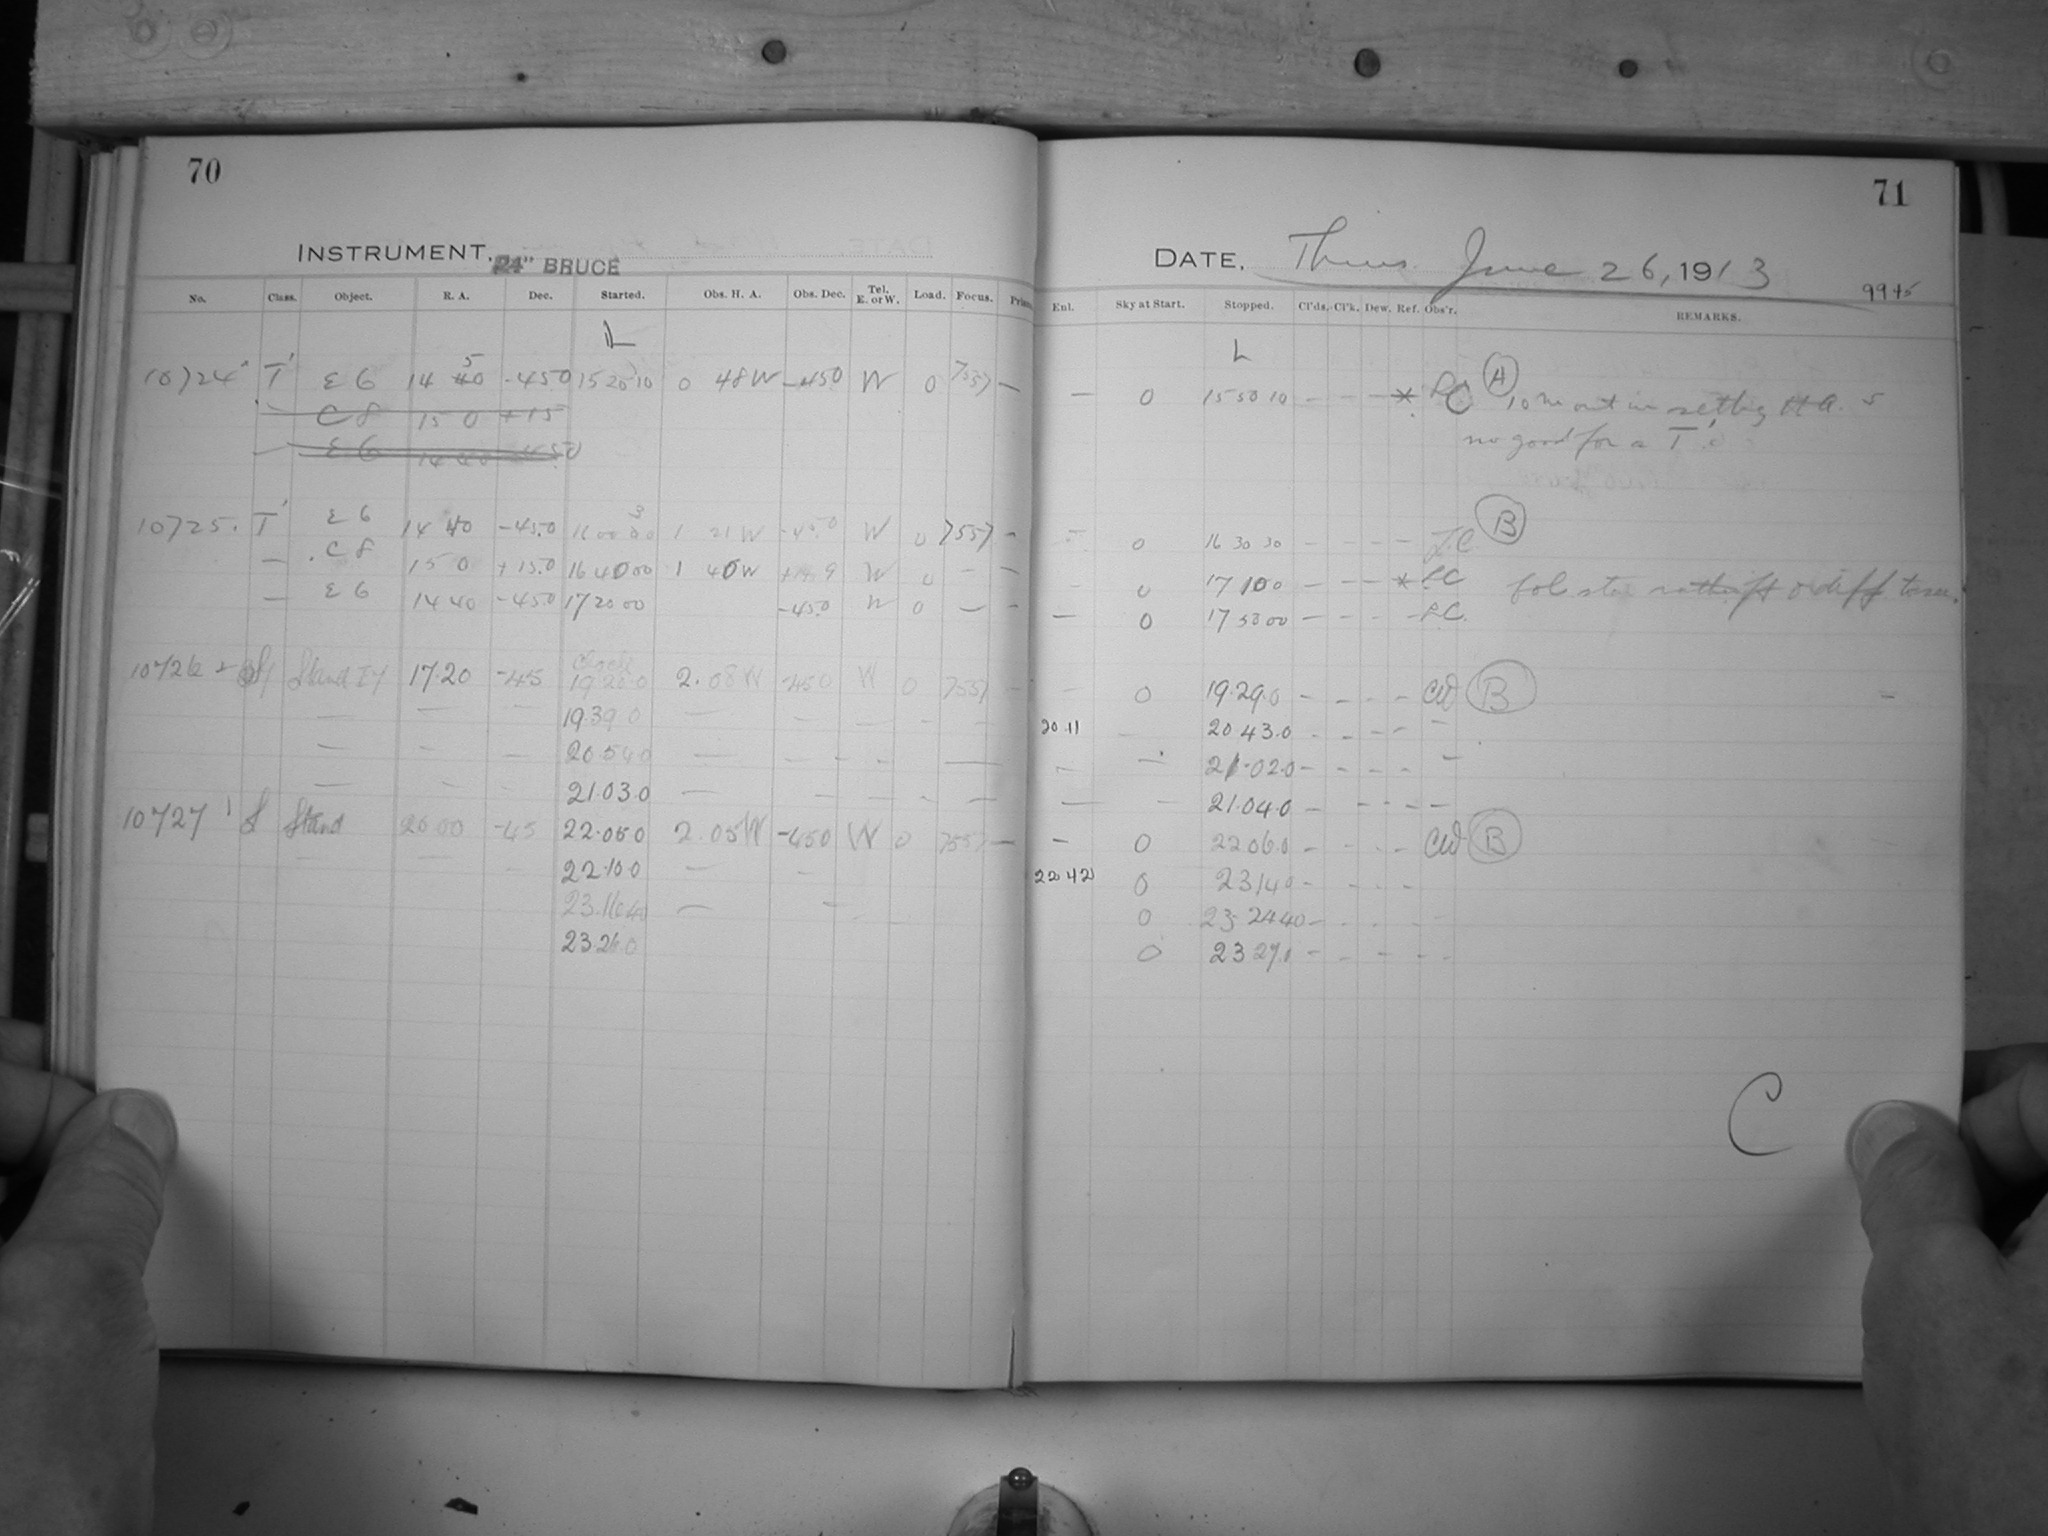 70
INSTRUMENT. 24" BRUCE
No. Class. Object. R. A. Dec. Started. Obs. H. A. Obs. Dec. Tel. E. or W. Load. Focus.
L
10724 T' E 6 14 40 5 -450 15 20 10 0 48 W -450 W 0 7557 —
C 8 15 0 +15
— E 6 14 40 -450
10725. T' E 6 14 40 -45.0 1 21 W -45.0 W 0 7557 -
— . C 8 15 0 +15.0 16 40 00 1 40 W W 0 - —
— E 6 14 40 -450 17 20 00 -450 W 0 — -
10726 Stand 17.20 -45 19 20 0 2.08 W -450 W 0 7557 -
— — — 19.39 0 — — — -
— - — 20 54 0 — — - - —
— - - 21.03.0 — — — - —
10727 S Stand 20 00 -45 22.05 0 2.05 W -450 W 0 7557 —
— — 22.10.0 — -
23.16 40 — —
23.26.0
71
DATE. Thurs. June 26, 1913
9945
Enl. Sky at Start. Stopped. Cl'ds. Cl'k. Dew. Ref. Obs'r. REMARKS.
L
— 0 15 50 10 - - - * LC A 10 m out in setting H A. s
no good for a T'.
- 0 16 30 30 - - - - LC B
- 0 17 10 0 - - - * LC
— 0 17 50 00 - - - - LC.
- 0 19.29.0 - - - - CW B -
20 11 — 20 43.0 - - - - -
— — 21.02.0 - - - - -
— — 21.04.0 - - - - -
- 0 22 06.0 - - - CW B
22 42 0 23 14 0 - - - -
0 23 24 40 - - - -
0 23 27.0 - - - - -
C